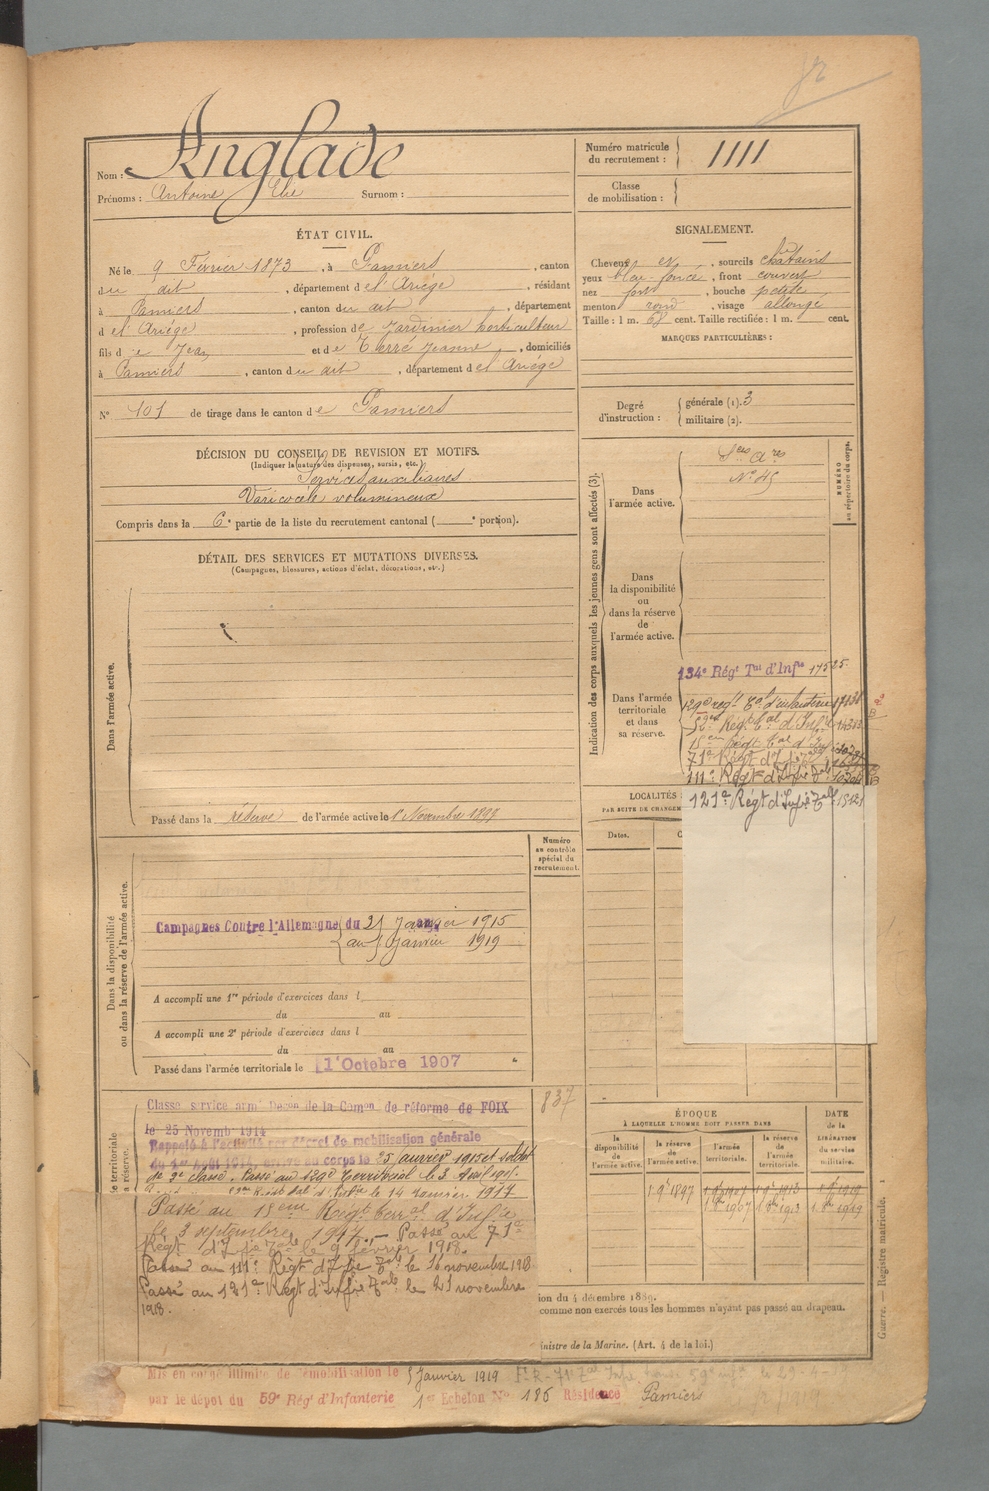 Nom : Anglade
Prénoms : Antoine Elie Surnom :
Numéro matricule du recrutement : 1111
Classe de mobilisation :
ÉTAT CIVIL.
Né le 9 Février 1873, à Pamiers, canton
du dit, département de l'Ariège, résidant
à Pamiers, canton du dit, département
de l'Ariège, profession de jardinier horticulteur
fils de Jean et de Terré Jeanne, domiciliés
à Pamiers, canton du dit, département de l'Ariège
N° 101 de tirage dans le canton de Pamiers
SIGNALEMENT.
Cheveux et, sourcils châtains
yeux bleu foncé, front couvert
nez fort, bouche petite
menton rond, visage allongé
Taille : 1 m. 68 cent. Taille rectifiée : 1 m. cent.
MARQUES PARTICULIÈRES :
Degré d'instruction :
générale (1). 3
militaire (2).
DÉCISION DU CONSEIL DE REVISION ET MOTIFS.
(Indiquer la nature des dispenses, sursis, etc.)
Services auxiliaires
Varicocèle volumineux
Compris dans la 6e partie de la liste du recrutement cantonal ( e portion).
DÉTAIL DES SERVICES ET MUTATIONS DIVERSES.
(Campagnes, blessures, actions d'éclat, décorations, etc.)
Dans l'armée active.
Passé dans la réserve de l'armée active le 1er Novembre 1897
Indication des corps auxquels les jeunes gens sont affectés (3).
NUMÉRO au répertoire du corps.
Dans l'armée active.
Sces Ares
N° 45
Dans la disponibilité ou dans la réserve de l'armée active.
Dans l'armée territoriale et dans sa réserve.
134e Régt Tal d'Infie 17525
129e regt Tal d'infanterie 17138
52me Régt Tal d'Infie 14383
18em Régt Tal d'Inf
71e Régt d'Infie Tale
111e Régt d'Infie Tale
121e Régt d'Infie Tale 15121
LOCALITÉS
PAR SUITE DE CHANGEM
Dates.
Dans la disponibilité ou dans la réserve de l'armée active.
Numéro au contrôle spécial du recrutement.
Campagnes Contre l'Allemagne du 21 Janvier 1915
au 5 Janvier 1919
A accompli une 1re période d'exercices dans l
du au
A accompli une 2e période d'exercices dans l
du au
Passé dans l'armée territoriale le 1er Octobre 1907
837
Classé service armé Décon de la Comon de réforme de FOIX
le 25 Novemb 1914
Rappelé à l'activité par décret de mobilisation générale
du 1er Août 1914, arrivé au corps le 25 janvier 1915 et soldat
de 2e classe. Passé au 129e Territorial le 3 Avril 1915.
le 14 Janvier 1917
Passé au 18em Régt Terral d'Infie
le 3 septembre 1917. – Passé au 71e
Régt d'Infie Tale le 9 février 1918.
Passé au 111e Régt d'Infie Tale le 16 novembre 1918
Passé au 121e Régt d'Infie Tale le 21 novembre
1918.
ÉPOQUE
À LAQUELLE L'HOMME DOIT PASSER DANS
la disponibilité de l'armée active.
la réserve de l'armée active.
l'armée territoriale.
la réserve de l'armée territoriale.
DATE de la LIBÉRATION du service militaire.
1 9bre 1897 1 9bre 1907 1 9bre 1913 1 9bre 1919
1 8bre 1907 1 8bre 1913 1 8bre 1919
ion du 4 décembre 1889.
comme non exercés tous les hommes n'ayant pas passé au drapeau.
inistre de la Marine. (Art. 4 de la loi.)
Guerre. — Registre matricule. 1
Mis en congé illimité de démobilisation le 5 Janvier 1919
par le dépôt du 59e Régt d'Infanterie 1er Echelon N° 186 Résidence Pamiers